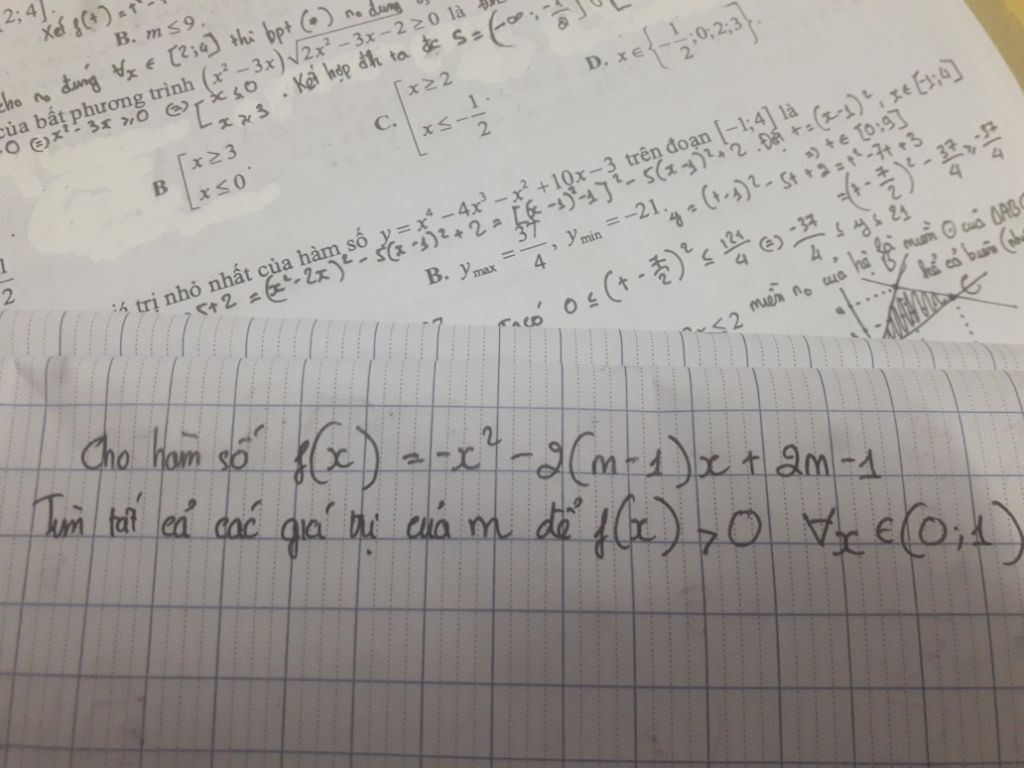 2; 4].
Xét f(t) = t²
B. m ≤ 9.
cho no đúng ∀x ∈ [2;4] thì bpt (*) no đúng
của bất phương trình (x² − 3x)√(2x² − 3x − 2) ≥ 0 là
0 ⇔ x² − 3x ≥ 0 ⇔ [x ≤ 0 x ≥ 3. Kết hợp đk ta đc S = (−∞;
B [x ≥ 3 x ≤ 0.
C. [x ≥ 2 x ≤ −1/2.
D. x ∈ {−1/2; 0; 2; 3}.
1/2
giá trị nhỏ nhất của hàm số y = x⁴ − 4x³ − x² + 10x − 3 trên đoạn [−1; 4] là
5+2 = (x² − 2x)² − 5(x−1)² + 2 = [(x−1)² −1]² − 5(x−1)² + 2. Đặt t = (x−1)², x ∈ [−1;4]
⇒ t ∈ [0;9]
B. y max = 37/4, y min = −21.
y = (t−1)² − 5t + 2 = t² − 7t + 3
= (t − 7/2)² − 37/4 ≥ −37/4
Ta có 0 ≤ (t − 7/2)² ≤ 121/4 ⇔ −37/4 ≤ y ≤ 21
≤ 2 miền no của hệ là miền ∆ABC
kể cả biên
C
Cho hàm số f(x) = −x² − 2(m−1)x + 2m − 1
Tìm tất cả các giá trị của m để f(x) > 0 ∀x ∈ (0; 1)